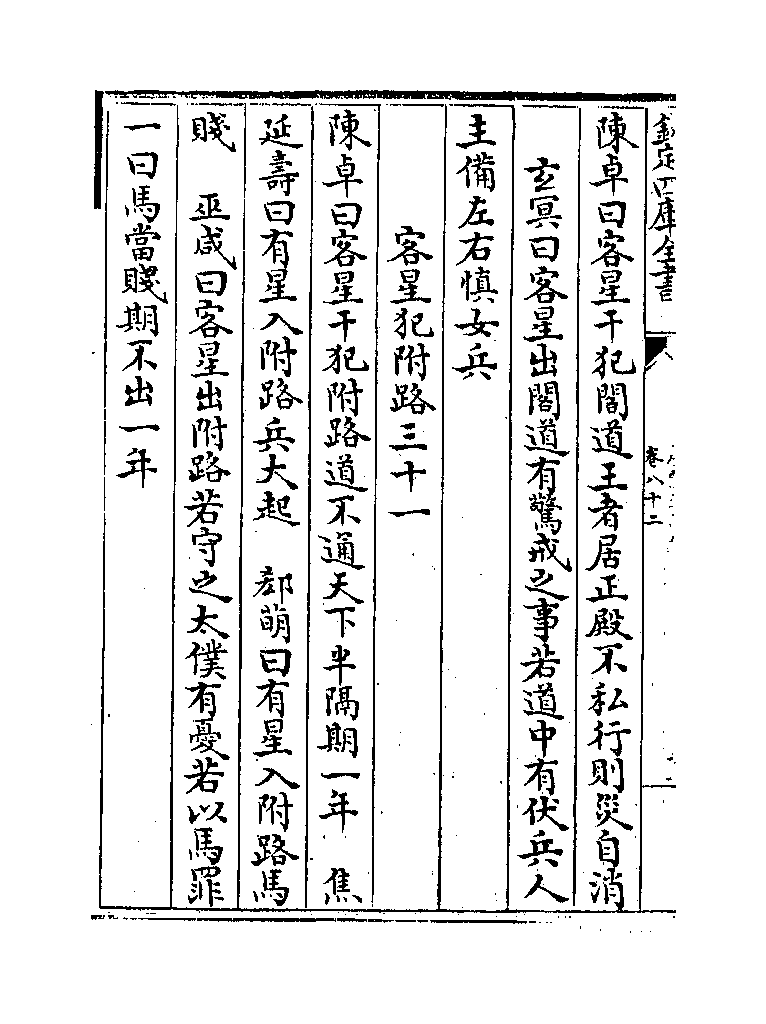 欽定四庫全書
卷八十二
陳卓曰客星干犯閣道王者居正殿不私行則災自消
玄冥曰客星出閣道有驚戒之事若道中有伏兵人
主備左右慎女兵
客星犯附路三十一
陳卓曰客星干犯附路道不通天下半隔期一年　焦
延壽曰有星入附路兵大起　郗萌曰有星入附路馬
賤　巫咸曰客星出附路若守之太僕有憂若以馬罪
一曰馬當賤期不出一年